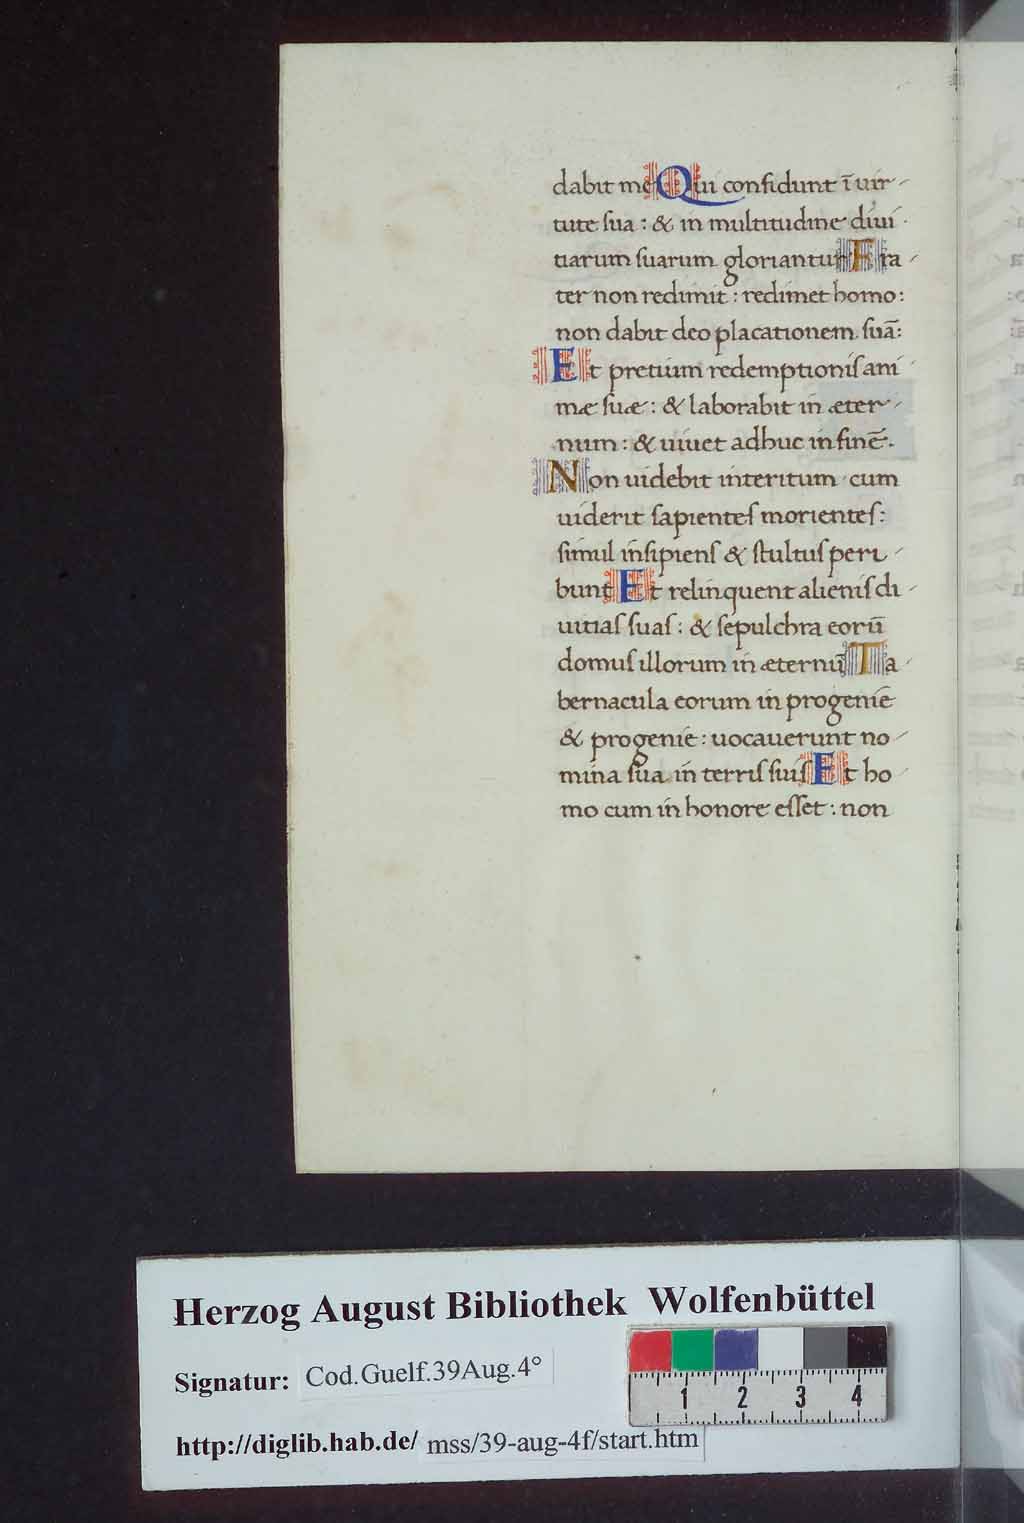 dabit me Qui confidunt ī uir-
tute sua : & in multitudine diui
tiarum suarum gloriantur Fra-
ter non redimit : redimet homo :
non dabit deo placationem suā :
Et pretium redemptionis ani
mæ suæ : & laborabit in æter-
num : & uiuet adhuc in finē .
Non uidebit interitum cum
uiderit sapientes morientes :
simul insipiens & stultus peri-
bunt Et relinquent alienis di-
uitias suas : & sepulchra eorū
domus illorum in æternū Ta-
bernacula eorum in progeniē
& progenie : uocauerunt no-
mina sua in terris suis Et ho-
mo cum in honore esset : non
Herzog August Bibliothek Wolfenbüttel
Signatur: Cod.Guelf.39Aug.4°
1 2 3 4
http://diglib.hab.de/ mss/39-aug-4f/start.htm